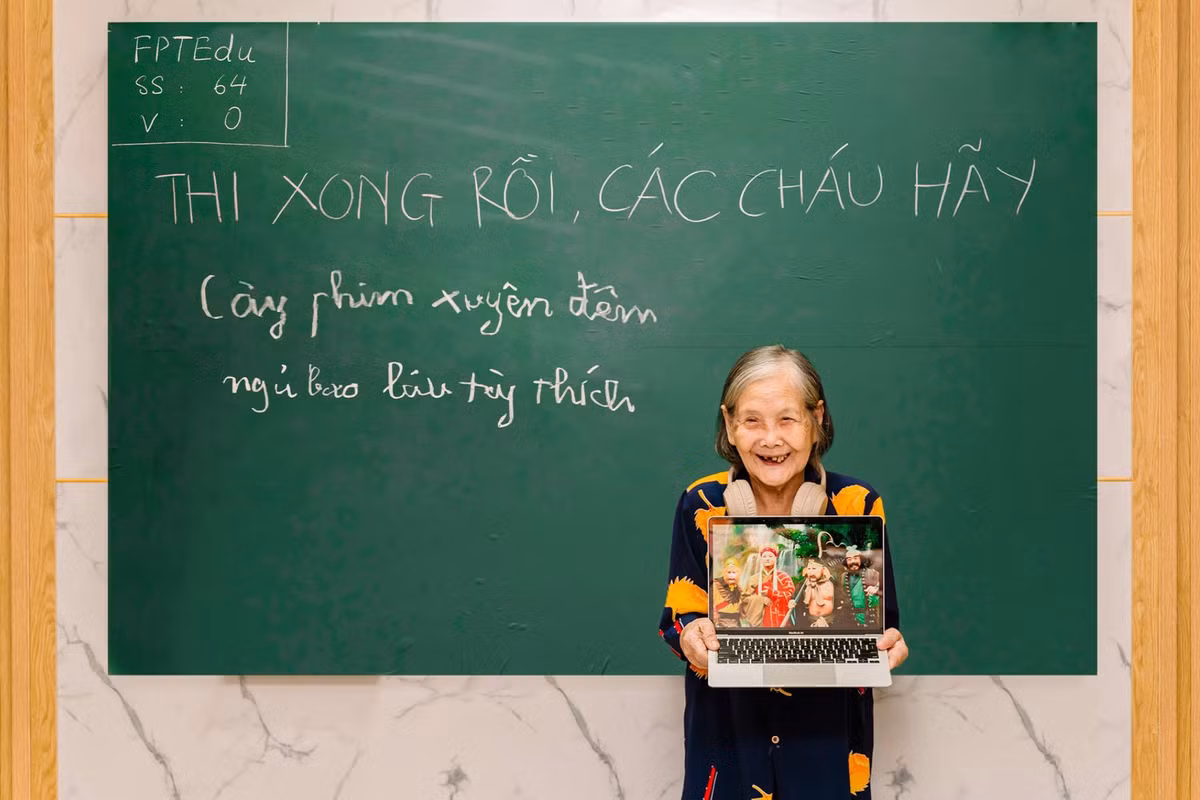 FPTEdu
SS : 64
V : 0
THI XONG RỒI, CÁC CHÁU HÃY
Cày phim xuyên đêm
ngủ bao lâu tùy thích